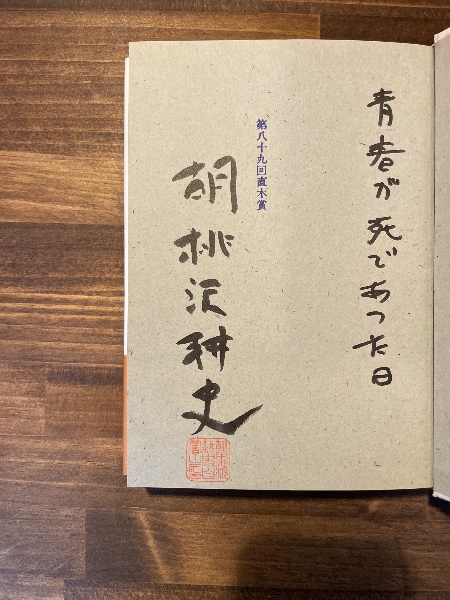 青春が死であった日
第八十九回直木賞
胡桃沢耕史